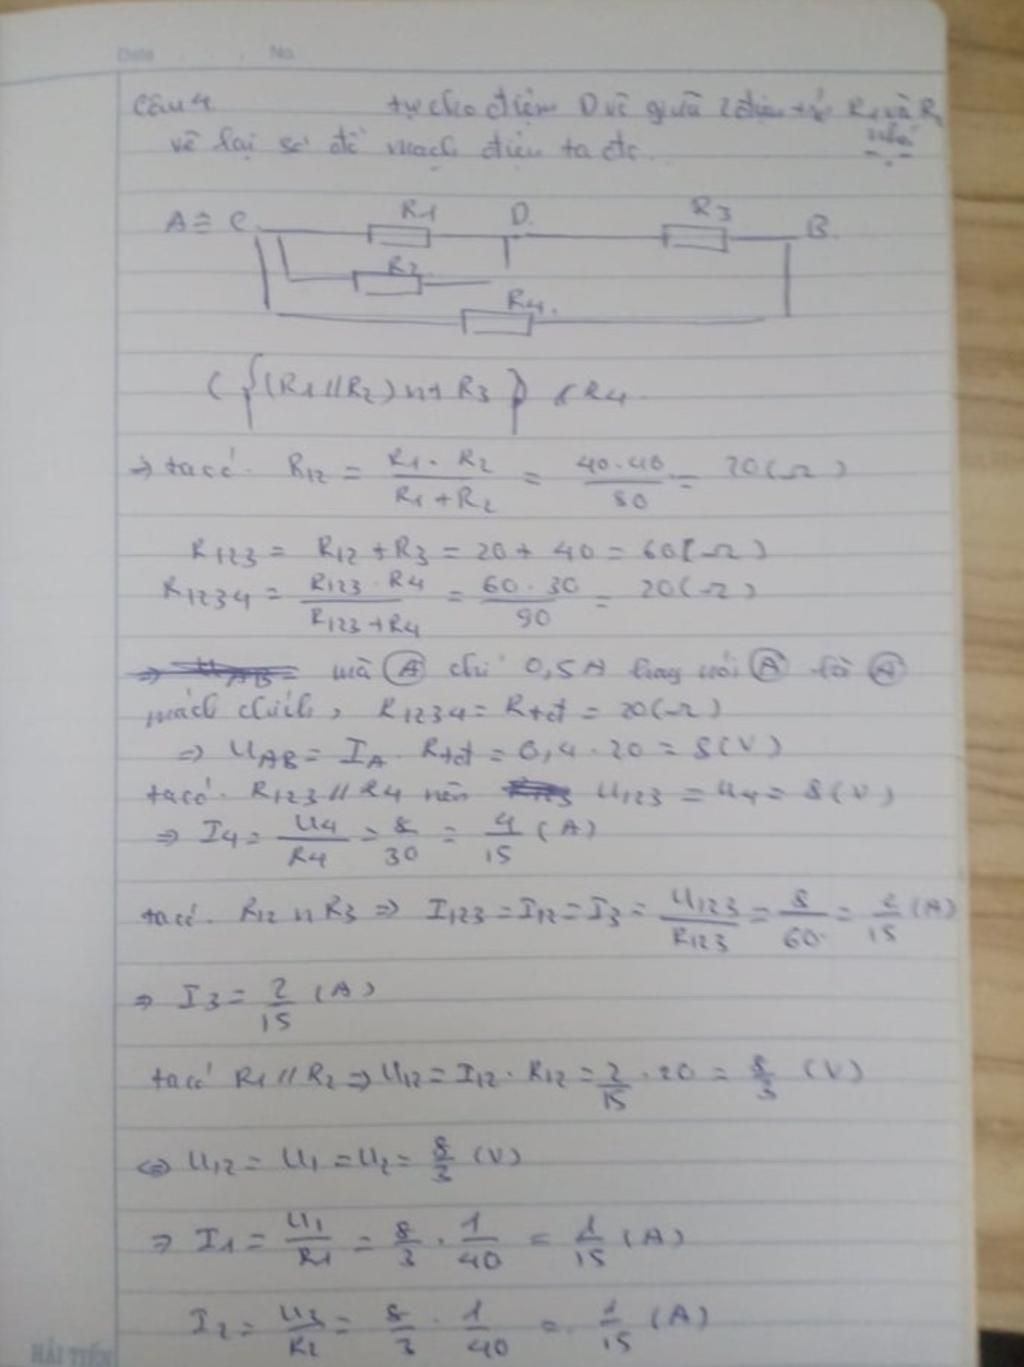 Date . . . . No.
Câu 4 tự cho điểm D về giữa 2 điện trở R1 và R2
nhá
vẽ lại sơ đồ mạch điện ta đc
A ≡ C R1 D R3 B
R2
R4
({(R1 // R2) nt R3} // R4
⇒ ta có R12 = R1 . R2 / R1 + R2 = 40 . 40 / 80 = 20 (Ω)
R123 = R12 + R3 = 20 + 40 = 60 (Ω)
R1234 = R123 . R4 / R123 + R4 = 60 . 30 / 90 = 20 (Ω)
⇒ mà (A) chỉ 0,5A hay nói (A) là (A)
mạch chính, R1234 = Rtđ = 20 (Ω)
⇒ UAB = IA . Rtđ = 0,4 . 20 = 8 (V)
ta có R123 // R4 nên U123 = U4 = 8 (V)
⇒ I4 = U4 / R4 = 8 / 30 = 4 / 15 (A)
ta có R12 nt R3 ⇒ I123 = I12 = I3 = U123 / R123 = 8 / 60 = 2 / 15 (A)
⇒ I3 = 2 / 15 (A)
ta có R1 // R2 ⇒ U12 = I12 . R12 = 2 / 15 . 20 = 8 / 3 (V)
⇔ U12 = U1 = U2 = 8 / 3 (V)
⇒ I1 = U1 / R1 = 8 / 3 . 1 / 40 = 1 / 15 (A)
I2 = U3 / R2 = 8 / 3 . 1 / 40 = 1 / 15 (A)
HẢI TIẾN